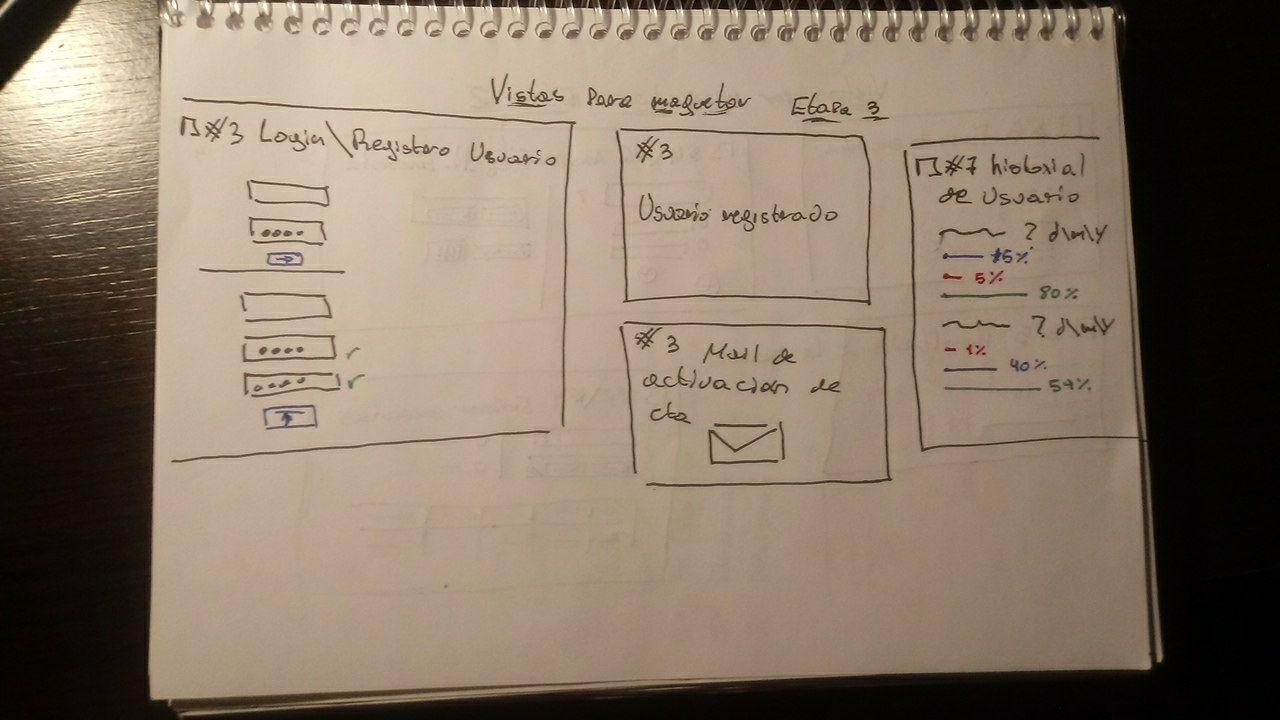 Vistas para maquetar Etapa 3
#3 Login\Registro Usuario
#3
Usuario registrado
#3 Mail de
activacion de
cta
#7 historial
de Usuario
? d\m\y
15%
5%
80%
? d\m\y
1%
40%
59%